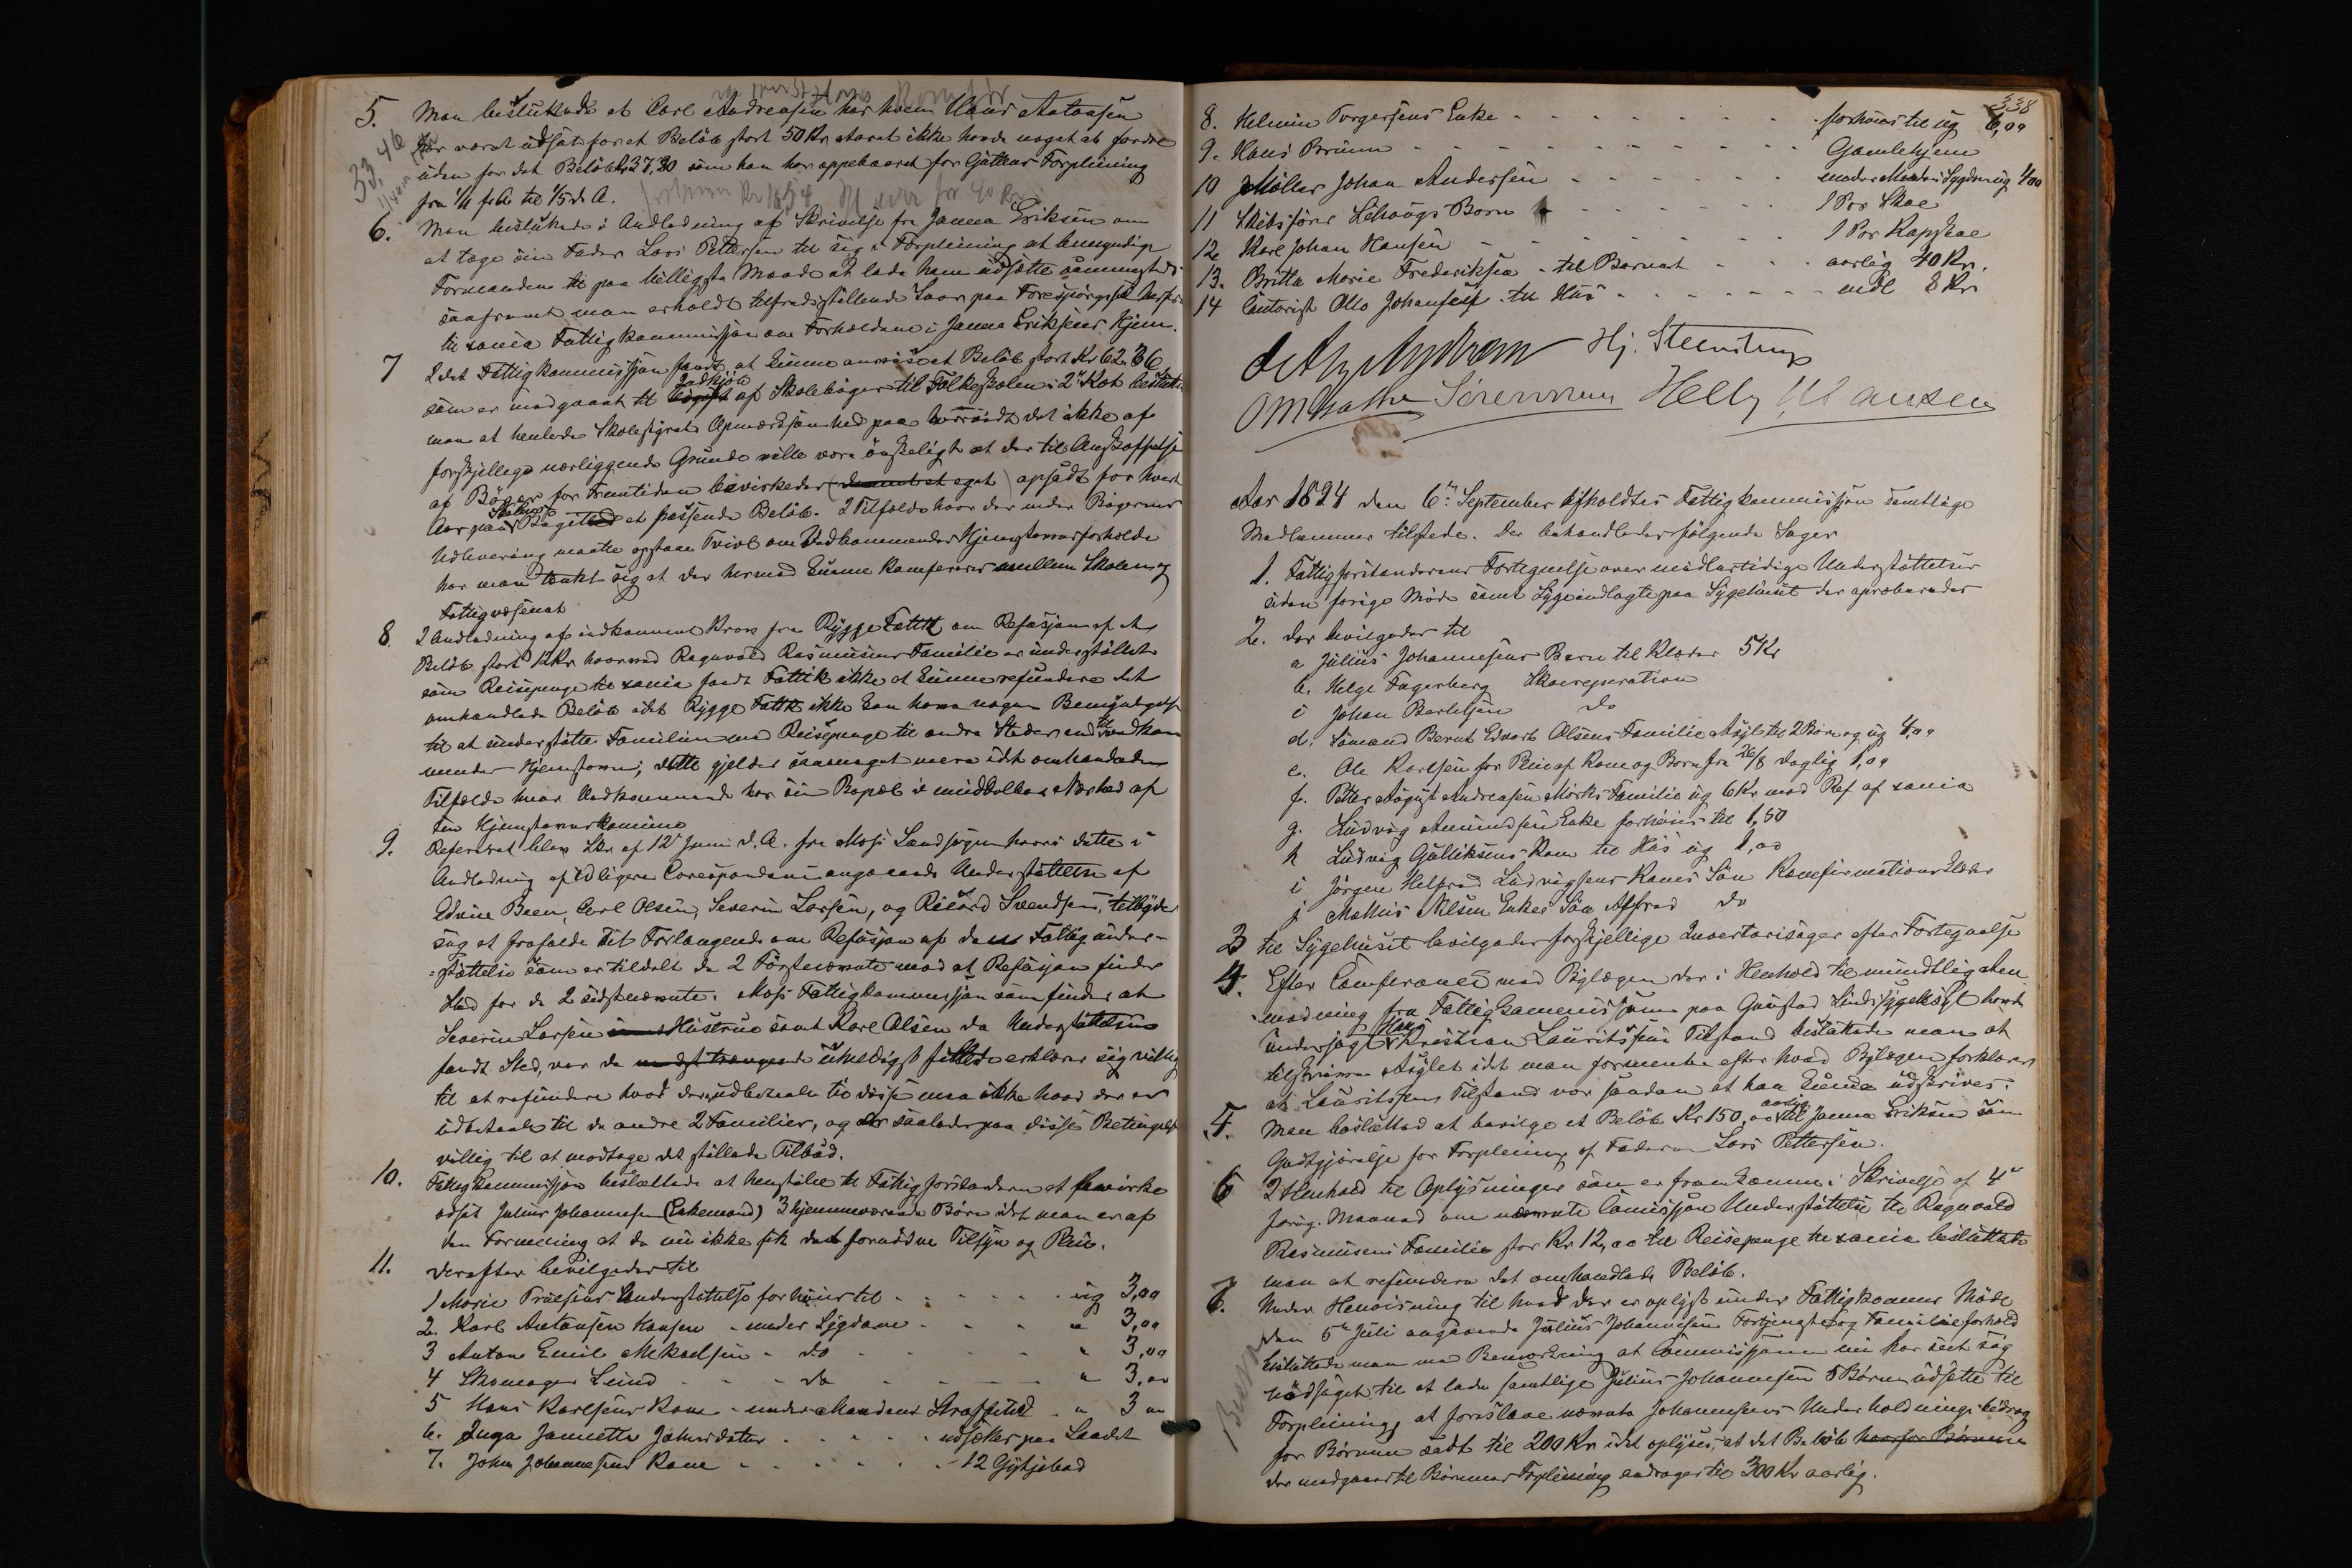 5. Man besluttede at Carl Andreasen har hvem Hans Antonsen
har været udsat for et Beløb stort 50 Kr Aaret ikke havde noget at fordre
uden for det Beløb Kr 37,30 som han har oppebaaret for Guttens Forpleining
fra 1/4 f.A. til 1/5 d. A.
33,46
6. Man besluttede i Andledning af Skrivelse fra Janna Eriksen om
at tage sin Fader Lars Pettersen til sig i Forpleining at bemyndige
Formanden til paa billigste Maade at lade ham udsætte sammesteds
saafremt man erholdt tilfredsstillende Svar paa Forespørgsel
til xania Fattigkommissjon om Forholdene i Janna Eriksens Hjem.
7 Idet Fattigkommissjon fandt at kunne anvise et Beløb stort Kr 62.36
som er medgaaet til Indkjøb af Skolebøger til Folkeskolen i 2det Kvt besluttede
man at henlede Skolestyrets Opmærksomhed paa hvorvidt det ikke af
forskjellige nærliggende Grunde ville være ønskeligt at der til Anskaffelse
af Bøger for Fremtiden bevirkedes opsadt for hvert
Aar paa Skolens Bugett et passende Beløb. I Tilfælde hvor der under Bøgernes
Udlevering maatte opstaae Tvivl om Vedkommendes Hjemstavnsforholde
har man tænkt sig at der hermed kunne konfereres mellem Skolen og
Fattigvæsenet
8. I Andledning af indkommet Krav fra Rygge Fattk om Refusjon af et
Beløb stort 12 Kr hvormed Ragnvald Rasmusens Familie er understøttet
som Reisepenge til xania fandt Fattk ikke at kunne refundere det
omhandlede Beløb idet Rygge Fattk ikke kan have nogen Bemyndigelse
til at understøtte Familien med Reisepenge til andre Steder end til vedkom
mendes Hjemstavn, dette gjelder saameget mere i det omhandlede
Tilfælde hvor Vedkommende har sin Bopæl i umiddelbar Nærhed af
sin Hjemstavnskommune
9. Refereret blev Skr. af 12te Juni d. A. fra Moss Landsogn hvori dette i
Andledning af tidligere Corespondance angaaende Understøttelse af
Edvine Been, Carl Olsen, Severin Larsen, og Rikard Svendsen, tilbyder
sig at frafalde sit Forlangende om Refusjon af den Fattigunder-
støttelse som er tildelt de 2 Førstnævnte mod at Refusjon finder
Sted for de 2 sidstnævnte. Moss Fattigkommissjon som finder at
Severin Larsens Hustrue samt Karl Olsen da Understøttelsen
fandt Sted, var de uheldigst stillede erklærer sig villig
til at refundere hvad der er udbetalt til disse men ikke hvad der er
udbetalt til de andre 2 Familier, og er saaledes paa disse Betingelser
villig til at modtage det stillede Tilbud.
10. Fattigkommissjon besluttede at henstille til Fattigforstanderen at bevirke
udsat Julius Johannesen (Enkemand) 3 hjemmeværende Børn idet man er af
den Formening at de nu ikke fik det fornødne Tilsyn og Pleie.
11. Derefter bevilgedes til
1 Marie Træsens Understøttelse forhøies til ug 3,00
2. Karl Antonsen Hansen - under Sygdom " 3,00
3 Anton Emil Mikaelsen - do " 3,00
4 Skomager Lund - do " 3.00
5 Hans Karlsens Kone - under Mandens Straffetid " 3 00
6. Inga Jannette Johnsdatter udsettes paa Landet
7. John Johannesens Kone 12 Gytjebad
338
8. Helmin Torgersens Enke forhøies til ug 6,00
9. Hans Bruun Gamlehjem
10 Møller Johan Andersen under Mandens Sygdom ug 4,00
11 Skibsfører Lehaugs Børn 1 Par Skoe
12 Karl Johan Hansen 1 Par Kapskoe
13. Britta Marie Frederiksen - til Barnet aarlig 40 Kr.
14 Cantorist Otto Johansen til Hus mdl 8 Kr
Hj. Steenstrup
Sørensen Helly M Hansen
Aar 1894 den 6te September afholdtes Fattigkommissjon samtlige
Medlemmer tilstede. Der behandledes følgende Sager
1. Fattigforstanderens Fortegnelse over midlertidige Understøttelser
siden forige Møde samt Sygeindlagte paa Sygehuset der aproberedes
2. der bevilgedes til
a Julius Johannesens Børn til Klæder 5 Kr
b. Helge Fagerberg Skoereperation
c Johan Berntsen do
d. Sømand Bernt Edvart Olsens Familie Asyl til 2 Børn og ug 4,00
e. Ole Karlsen for Pleie af Kone og Børn fra 26/8 daglig 1,00
f. Petter August Andreasen Mørks Familie ug 6 Kr mod Ref af xania
g. Ludvig Amundsen Enke forhøies til 1,50
h Ludvig Gulliksens Kone til Hus ug 1,00
i Jørgen Helfred Ludvigsens Kones Søn Konfirmationsklæder
j Mathis Nilsen Enkes Søn Alfred do
3 til Sygehuset bevilgedes forskjellige Inventarisager efter Fortegnelse
4. Efter Conferance med Bylægen der i Henhold til mundtlig An
modning fra Fattigkommissjonen paa Gaustad Sindssygeasyl havde
undersøgt Hans Kristian Lauritsens Tilstand besluttede man at
tilskrive Asylet idet man formente efter hvad Bylægen forklarer
at Lauritsens Tilstand var saadan at han kunde udskrives.
5. Man besluttet at bevilge et Beløb Kr 150,00 aarlig til Janna Eriksen som
Godtgjørelse for Forpleining af Faderen Lars Pettersen.
6 I Henhold til Oplysninger som er fremkomne i Skrivelse af 4de
forig. Maaned om nævnte Comissjon Understøttelse til Ragnvald
Rasmusens Familie stor Kr 12,00 til Reisepenge til xania besluttede
man at refundere det omhandlede Beløb.
7. Under Henvisning til hvad der er oplyst under Fattigkommis Møde
den 5te Juli angaaende Julius Johannesens Fortjeneste og Familieforhold
besluttede man med Bemærkning at Commissjonen nu har seet sig
nødsaget til at lade samtlige Julius Johannesens 5 Børn udsætte til
Forpleining at foreslaae nævnte Johannesens Underholdnings bidrag
for Børnene sadt til 200 Kr idet oplyses, at det Beløb hvorfor Børnene
der medgaar til Børnenes Forpleining andrager til 300 Kr aarlig.